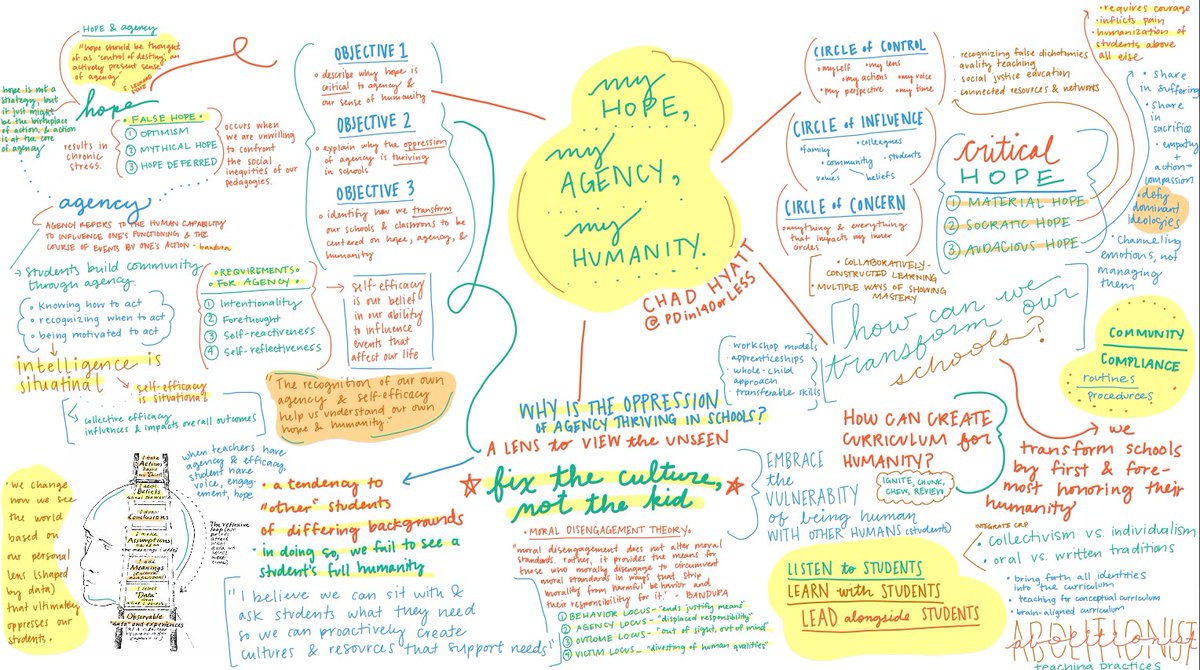 HOPE & agency
"hope should be thought
of as 'control of destiny,' an
actively present sense
of agency."
hope is not a
strategy, but
it just might
be the birthplace
of action, & action
is at the core
of agency
hope
results in
chronic
stress.
• FALSE HOPE •
① OPTIMISM
② MYTHICAL HOPE
③ HOPE DEFERRED
occurs when
we are unwilling
to confront
the social
inequities of our
pedagogies.
agency
AGENCY REFERS TO THE HUMAN CAPABILITY
TO INFLUENCE ONE'S FUNCTIONING & THE
COURSE OF EVENTS BY ONE'S ACTION - bandura
→ Students build community
through agency.
• knowing how to act
• recognizing when to act
• being motivated to act
intelligence is
situatinal
→ self-efficacy
is situational
collective efficacy
influences & impacts overall outcomes
• REQUIREMENTS •
FOR AGENCY •
① Intentionality
② Forethought
③ Self-reactiveness
④ Self-reflectiveness
→ self-efficacy
is our belief
in our ability
to influence
events that
affect our life
"The recognition of our own
agency & self-efficacy
help us understand our own
hope & humanity."
OBJECTIVE 1
• describe why hope is
critical to agency &
our sense of humanity
OBJECTIVE 2
• explain why the oppression
of agency is thriving
in schools
OBJECTIVE 3
• identify how we transform
our schools & classrms to be
centered on hope, agency, &
humanity
my
HOPE,
my
AGENCY,
my
HUMANITY.
CHAD HYATT
@PDin140orLESS
CIRCLE of CONTROL
• myself • my lens
• my actions • my voice
• my perspective • my time
CIRCLE of INFLUENCE
• family colleagues
• community • students
values beliefs
CIRCLE of CONCERN
• anything & everything
that impacts my inner
circles
• recognizing false dichotomies
• quality teaching
• social justice education
• connected resources & networks
• requires courage
• inflicts pain
• humanization of
students above
all else
critical
HOPE
① MATERIAL HOPE
② SOCRATIC HOPE
③ AUDACIOUS HOPE
• share
in suffering
• share
in sacrifice
• empathy
+
action=
compassion
• defy
dominant
ideologies
• Channeling
emotions, not
managing
them
• COLLABORATIVELY-
CONSTRUCTED LEARNING
• MULTIPLE WAYS OF SHOWING
MASTERY
how can we
transform our
schools?
• workshop models
• apprenticeships
• whole-child
approach
• transferable skills
COMMUNITY
COMPLIANCE
• routines
• procedures
→ we
transform schools
by first & fore-
most honoring their
humanity!
HOW CAN CREATE
CURRICULUM for
HUMANITY?
IGNITE, CHUNK,
CHEW, REVIEW
INTEGRATE CRP
• collectivism vs. individualism
• oral vs. written traditions
• bring forth all identities
into the curriculum
• teaching for conceptual curriculum
• brain-aligned curriculum
ABOLITIONIST
teaching practices
WHY IS THE OPPRESSION
OF AGENCY THRIVING IN SCHOOLS?
A LENS to VIEW the UNSEEN
fix the culture,
not the kid
• MORAL DISENGAGEMENT THEORY •
"moral disengagement does not alter moral
standards. rather, it provides the means for
those who morally disengage to circumvent
moral standards in ways that strip
morality from harmful behavior and
their responsibility for it." - BANDURA
① BEHAVIOR LOCUS - "ends justify means"
② AGENCY LOCUS - "displaced responsibility"
③ OUTCOME LOCUS - "out of sight, out of mind"
④ VICTIM LOCUS - "divesting of human qualities"
EMBRACE
the
VULNERABITY
of being human
WITH OTHER HUMANS (students)
LISTEN to STUDENTS
LEARN with STUDENTS
LEAD alongside STUDENTS
• a tendency to
"other" students
of differing backgrounds
• in doing so, we fail to see a
student's full humanity
"I believe we can sit with &
ask students what they need
so we can proactively create
cultures & resources that support needs"
when teachers have
agency & efficacy,
student have
voice, engage-
ment, hope
• we change
how we see
the world
based on
our personal
lens (shaped
by data)
that ultimately
oppresses our
students.
Actions
Beliefs
Conclusions
Assumptions
Meanings
"Data"
Observable
"data" and experiences
The reflexive
loop